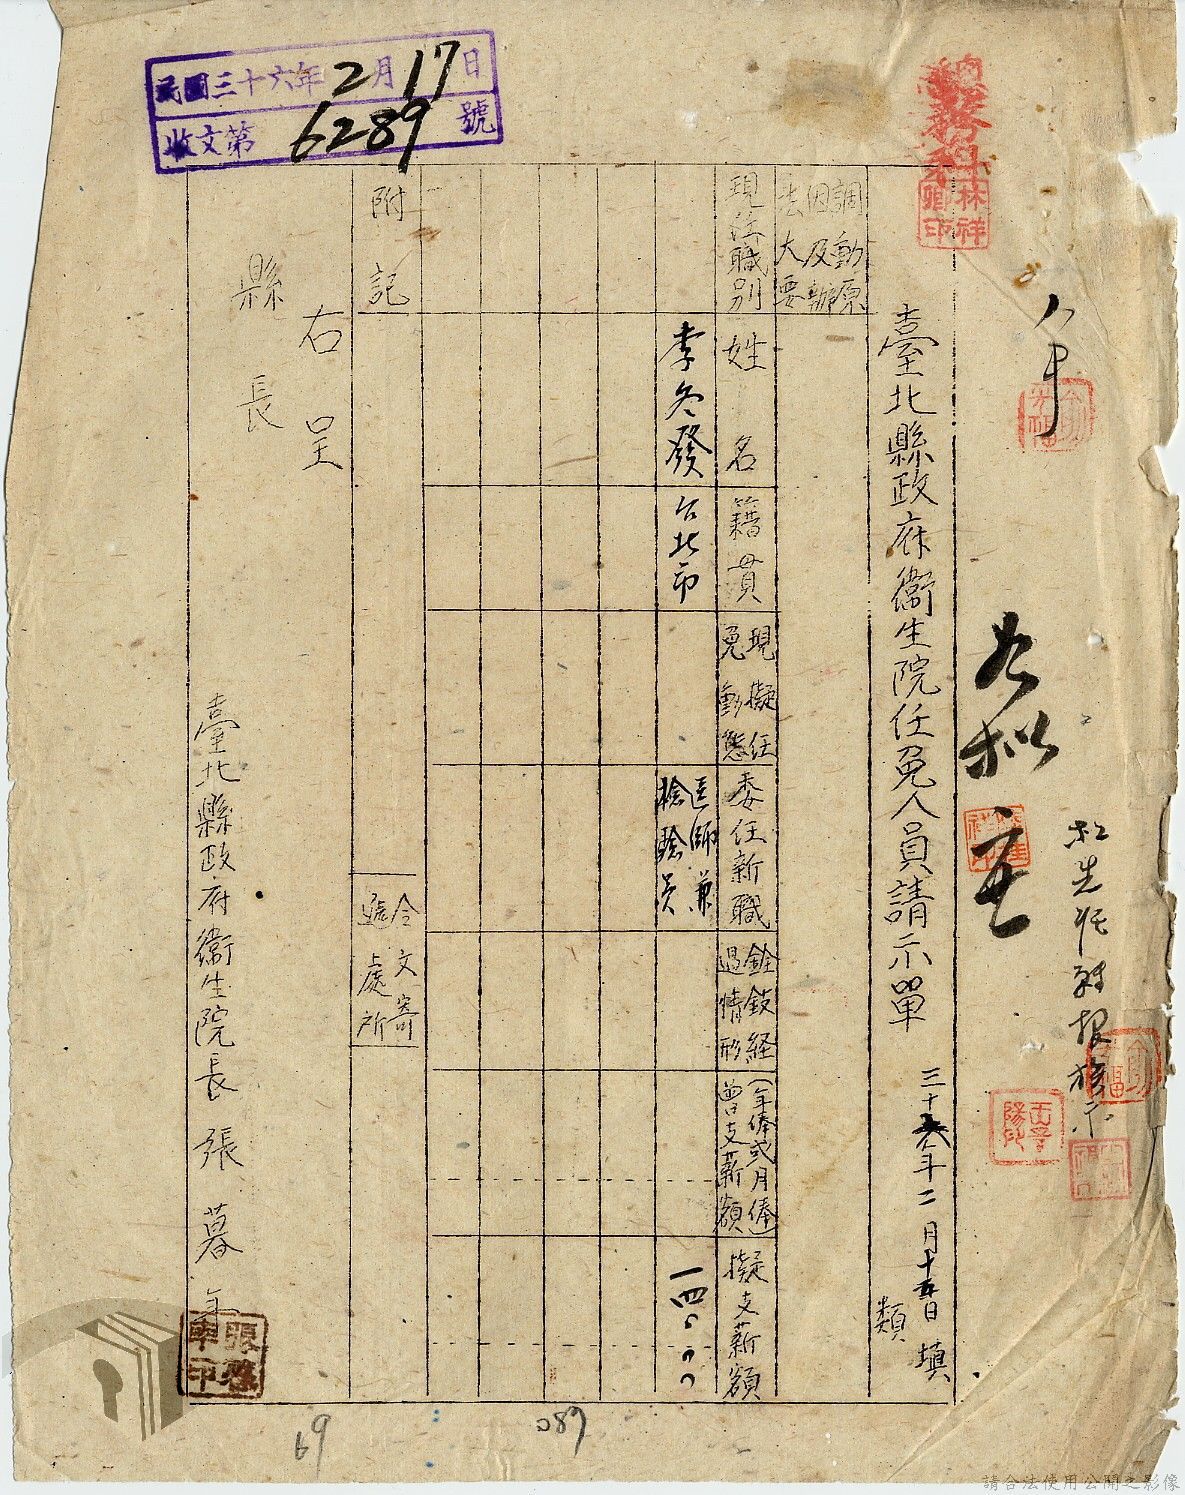 民國三十六年2月17日
收文第6289號
總務科
林祥
卿印
臺北縣政府衛生院任免人員請示單
三十六年二月十五日填
類
調動原
因及辦
法大要
現任職別
姓名
籍貫
現擬任
免動態
委任新職
銓敍経
過情形
(年俸或月俸)
曾支薪額
擬支薪額
李冬發
台北市
医師兼
檢驗員
一四〇.〇〇
附記
令文寄
遞上處所
右呈
縣長
臺北縣政府衛生院長張暮年
張暮
年印
69
087
請合法使用公開之影像